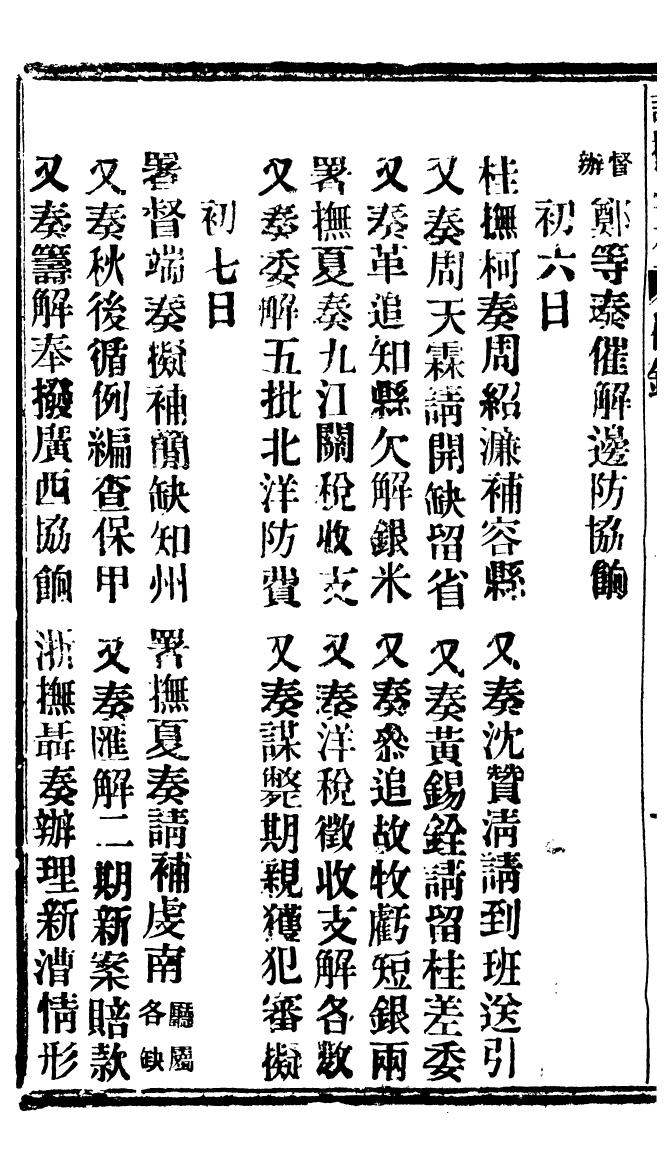 督辦鄭等奏催解邊防協餉
初六日
桂撫柯奏周紹濂補容縣 又奏沈贊清請到班送引
又奏周天霖請開缺留省 又奏黃錫銓請留桂差委
又奏革追知縣欠解銀米 又奏叅追故牧虧短銀兩
署撫夏奏九江關稅收支 又奏洋稅徵收支解各數
又奏委解五批北洋防費 又奏謀斃期親獲犯審擬
初七日
署督端奏擬補簡缺知州 署撫夏奏請補虔南廳屬各缺
又奏秋後循例編查保甲 又奏匯解二期新案賠款
又奏籌解奉撥廣西協餉 浙撫聶奏辦理新漕情形